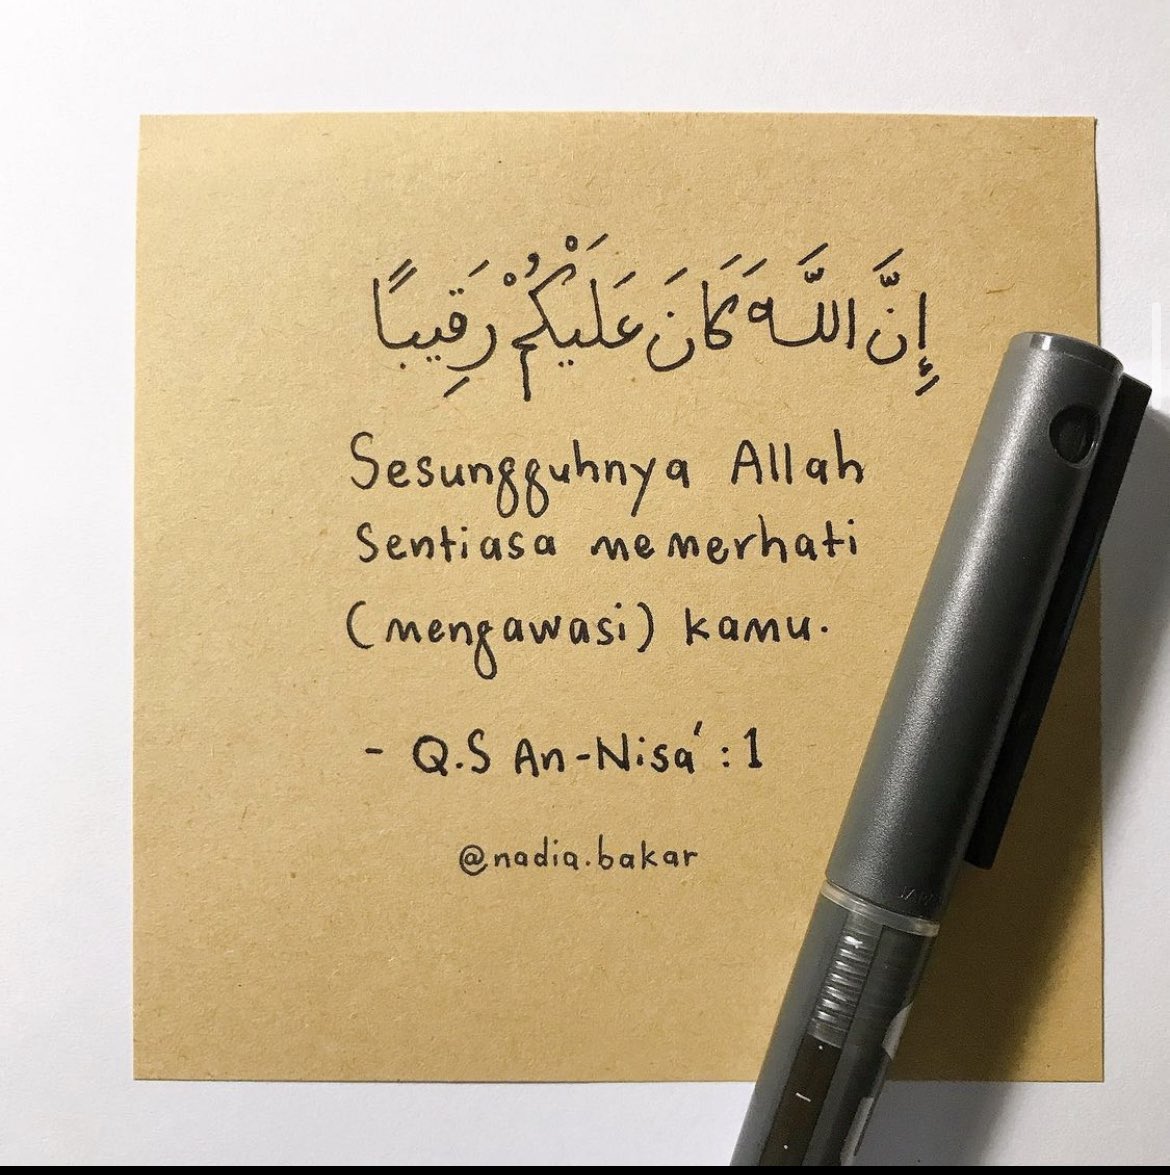 إِنَّ اللَّهَ كَانَ عَلَيْكُمْ رَقِيبًا
Sesungguhnya Allah
Sentiasa memerhati
(mengawasi) kamu.
- Q.S An-Nisa' : 1
@nadia.bakar